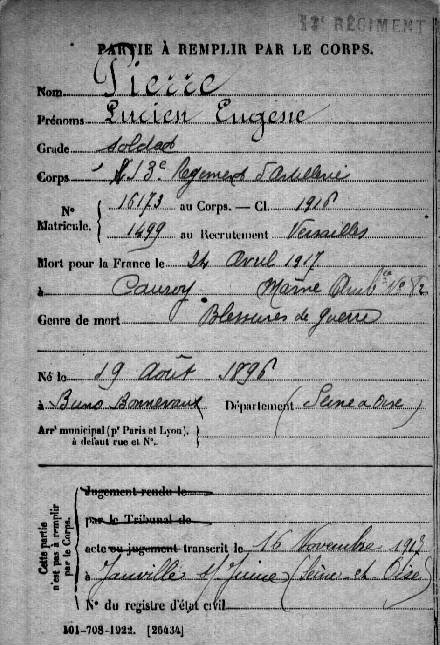 13e RÉGIMENT
PARTIE À REMPLIR PAR LE CORPS.
Nom Pierre
Prénoms Lucien Eugène
Grade soldat
Corps 13e Régiment d'Artillerie
N° Matricule. { 16173 au Corps. — Cl. 1916
1499 au Recrutement Versailles
Mort pour la France le 24 Avril 1917
à Cauroy Marne Amb ce
Genre de mort Blessures de guerre
Né le 19 Août 1896
à Buno Bonnevaux Département (Seine et Oise
Arrt municipal (pr Paris et Lyon), à défaut rue et N°. }
Cette partie n'est pas à remplir par le Corps.
Jugement rendu le
par le Tribunal de
acte ou jugement transcrit le 16 Novembre 1917
à Janville s/ Juine (Seine et Oise)
N° du registre d'état civil
101-708-1922. [26434]